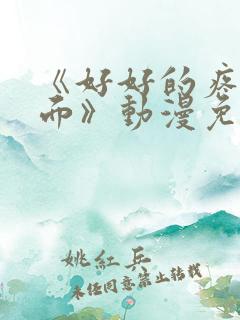 《好好的疼
而》動漫免
姚紅兵
未经同意禁止转载